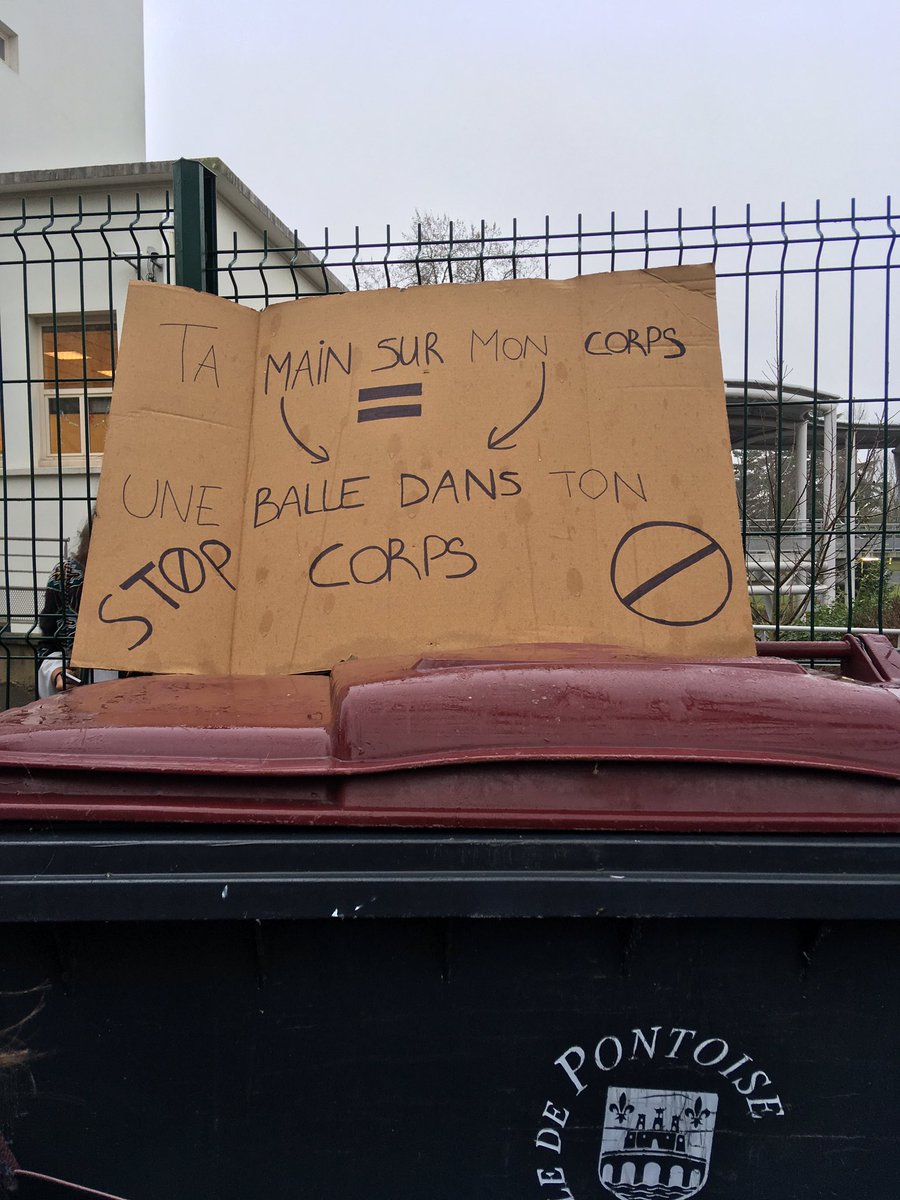 TA MAIN SUR MON CORPS
=
UNE BALLE DANS TON
CORPS
STOP
LE DE PONTOISE